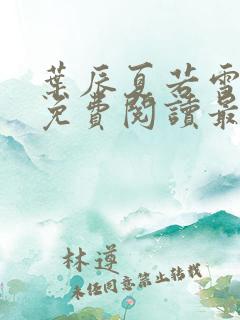 葉辰夏若雪
免費閱讀最
林遵
未任同意禁止轉載